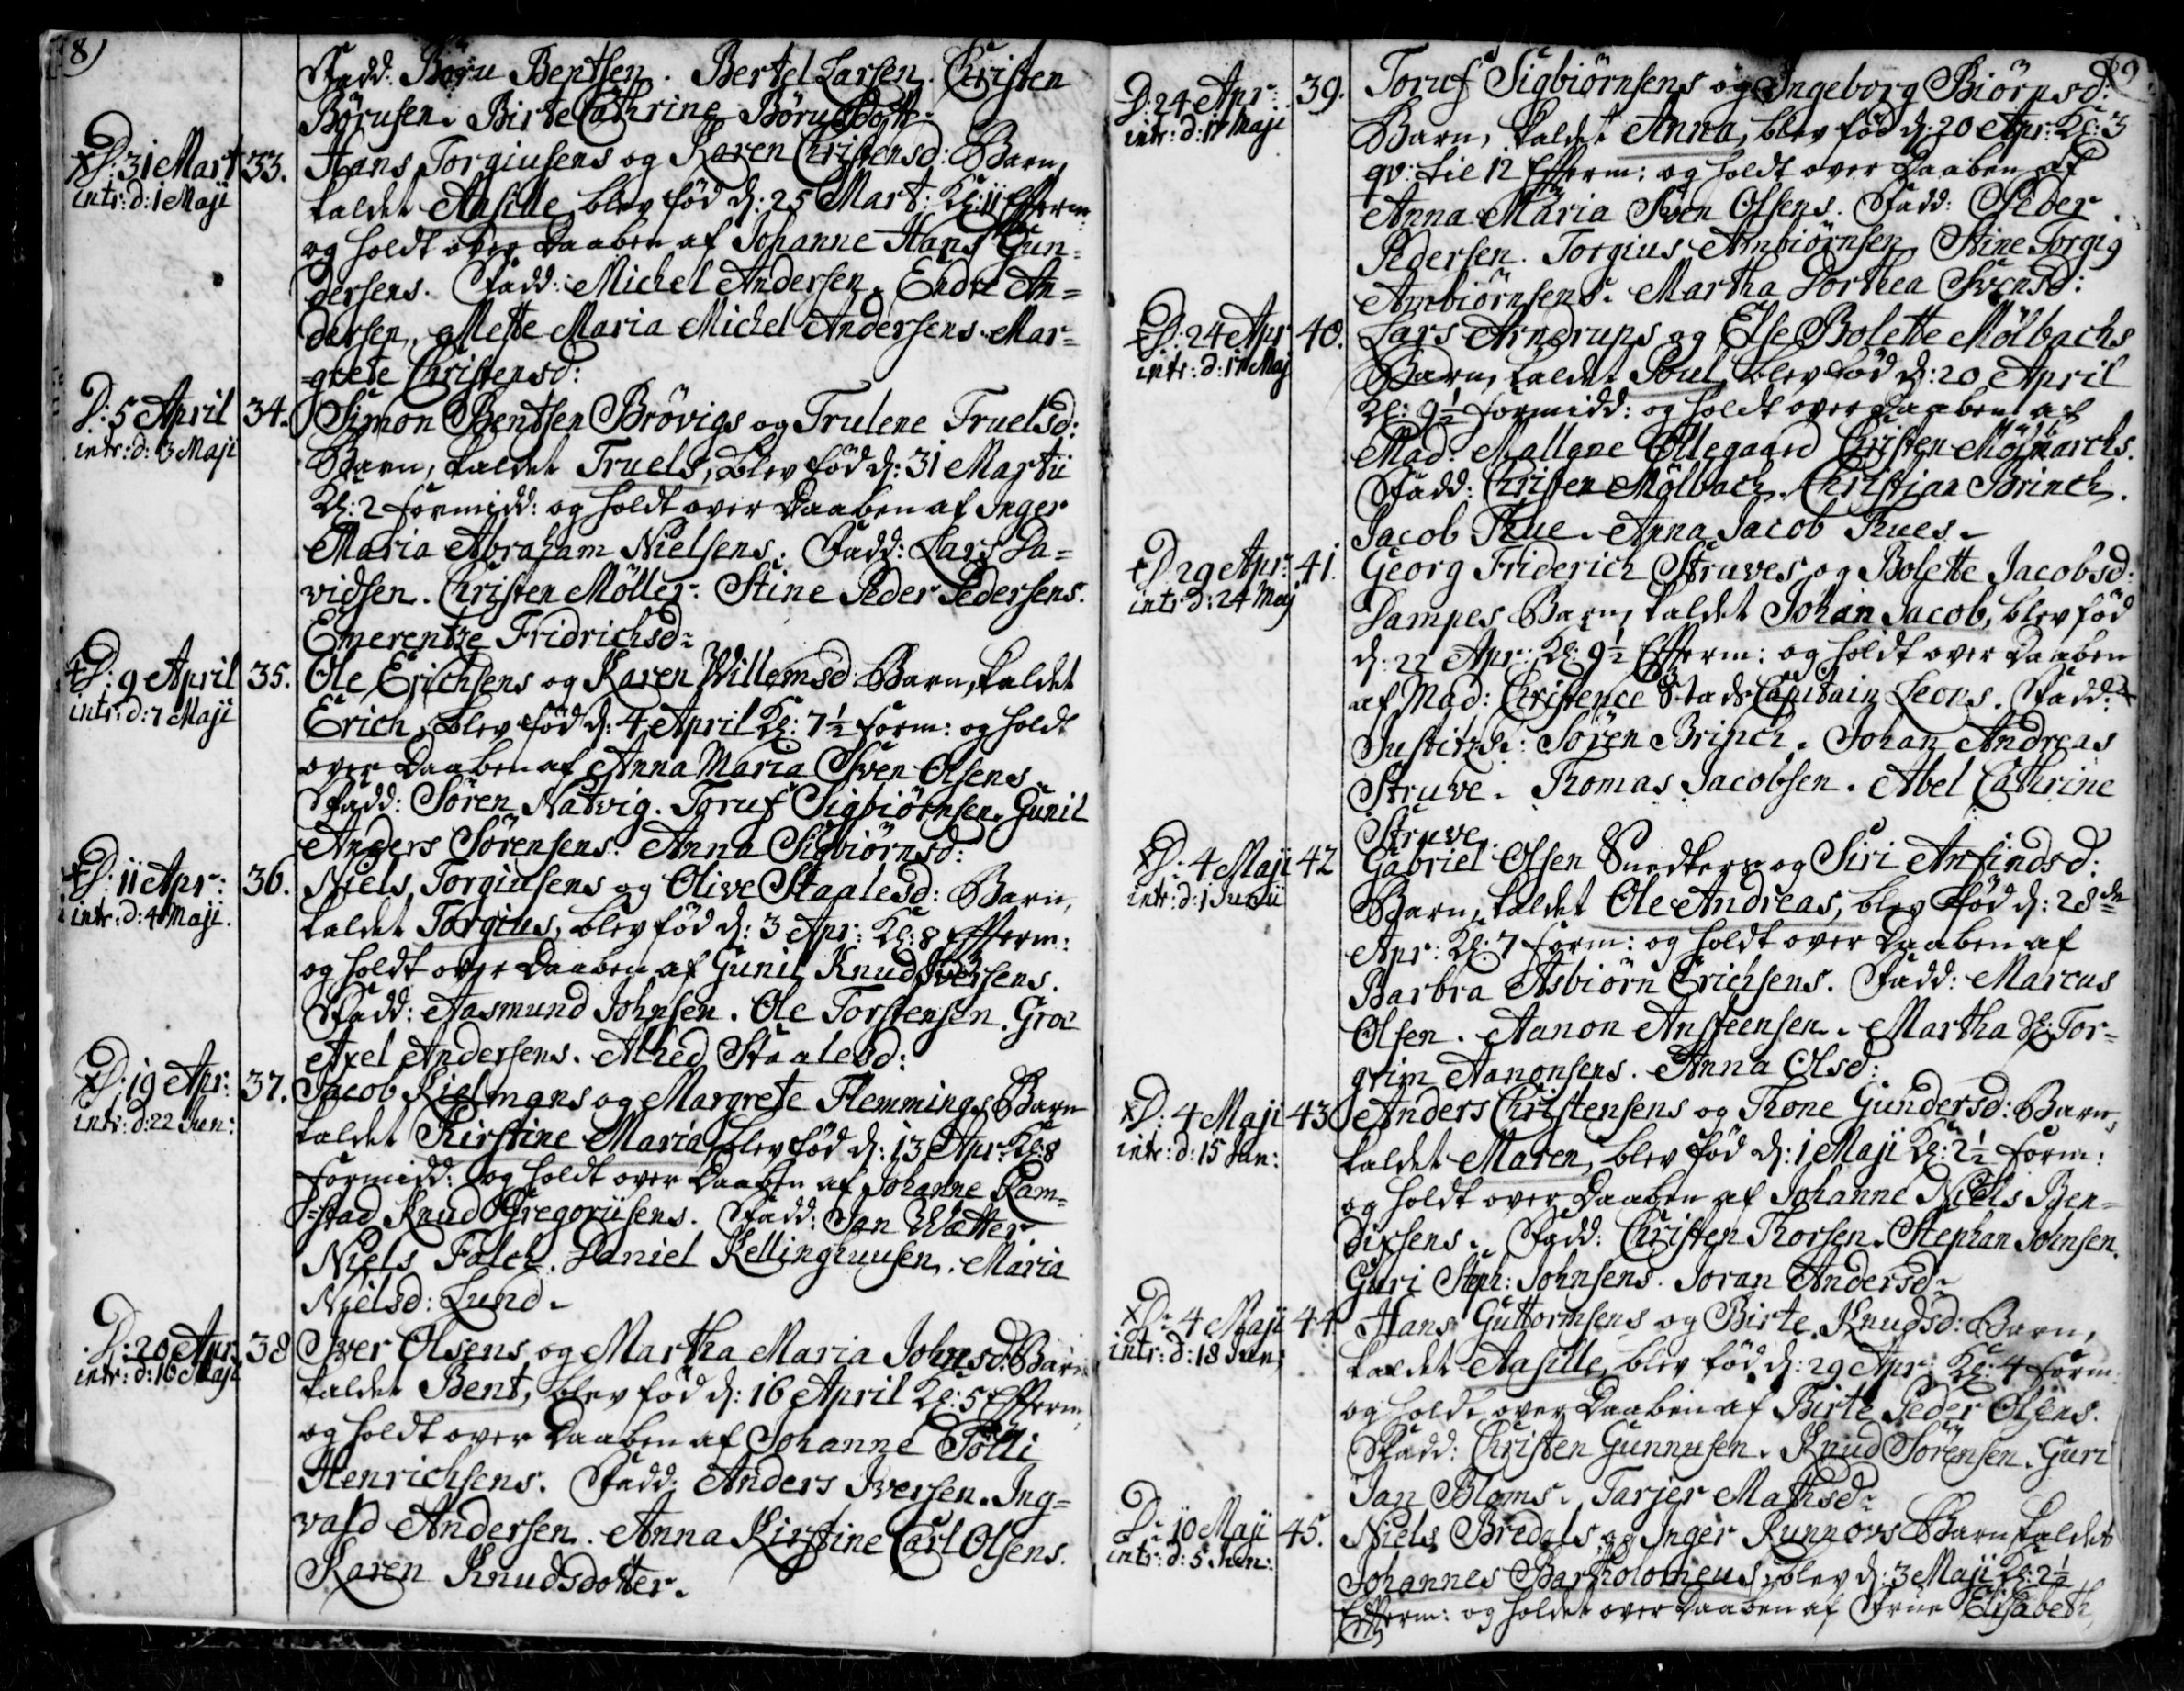 8)
Fadd: Böru Bentsen. Bertel Larsen. Christen
Börusen. Birte Cathrine Böru Dott:
D: 31 Mart 33. Hans Torgiusens og Karen Christensd: Barn,
intr: d: 1 Maji kaldet Aasille, blev fød d: 25 Mart: Kl: 11 Efterm:
og holdt over Daaben af Johanne Hans Gun=
dersens. Fadd: Michel Andersen. Endre An=
dersen, Mette Maria Michel Andersens. Mar=
=grete Christensd:
D: 5 April 34. Simon Bentsen Brövigs og Trulene Truelsd:
intr: d: 3 Maji Barn, kaldet Truels, blev fød d: 31 Martii
Kl: 2 formidd: og holdt over Daaben af Inger
Maria Abraham Nielsens. Fadd: Lars Da=
vidsen. Christen Möller. Stine Peder Pedersens.
Emerentze Fridrichsd:
D: 9 April 35. Ole Erichsens og Karen Willemsd: Barn, kaldet
intr: d: 7 Maji Erich, blev fød d: 4 April Kl: 7½ form: og holdt
over Daaben af Anna Maria Sven Olsens.
Fadd: Sören Natvig. Toruf Sigbiörnsen. Gunil
Anders Sörensens. Anna Sigbiörnsd:
D: 11 Apr: 36. Niels Torgiusens og Olive Staalesd: Barn,
intr: d: 4 Maji. kaldet Torgius, blev fød d: 3 Apr: Kl: 8 Efterm:
og holdt over Daaben af Gunil Knud Iversens.
Fadd: Aasmund Johnsen. Ole Torstensen. Groe
Axel Andersens. Alhed Staalesd:
D: 19 Apr: 37. Jacob Kielmans og Margrete Flemmings Barn
intr: d: 22 kaldet Kirstine Maria, blev fød d: 13 Apr: Kl: 8
formidd: og holdt over Daaben af Johanne Ram=
=stad Knud Gregoriisens. Fadd: Jan Watter.
Niels Falch. Daniel Kellinghuusen. Maria
Nielsd: Lund.
D: 20 Apr 38 Iver Olsens og Martha Maria Johnsd: Barn
intr: d: 16 Maji kaldet Bent, blev fød d: 16 April Kl: 5 Efterm
og holdt over Daaben af Johanne Tölli
Henrichsens. Fadd: Anders Iversen. Ing=
vald Andersen. Anna Kirstine Carl Olsens.
Karen Knudsdotter.
9
D: 24 Apr: 39. Toruf Sigbiörnsens og Ingeborg Biörnsd:
intr: d: 17 Maji Barn, kaldet Anna, blev fød d: 20 Apr: Kl: 3
qv: til 12 Efterm: og holdt over Daaben af
Anna Maria Sven Olsens. Fadd: Peder
Pedersen. Torgius Ambiörnsen. Stine Torgig
Ambiörnsens. Martha Dorthea Svensd:
D: 24 Apr 40. Lars Arndrups og Else Bolette Mölbachs
intr: d: 17 Maj Barn, kaldet Poul, blev fød d: 20 April
Kl: 9½ formidd: og holdt over Daaben af
Mad: Mallene Ollegaard Christen
Fadd: Christen Mölbach. Christian Brinch.
Jacob Rue. Anna Jacob Rues.
D 29 Apr: 41. Georg Friderich Struves og Bolette Jacobsd:
intr d: 24 Maj Lampes Barn, kaldet Johan Jacob, blev fød
d: 22 Apr: Kl: 9½ Efterm: og holdt over Daaben
af Mad: Christence Stads Capitain Leons. Fadd:
Justitzr: Sören Brinch. Johan Andreas
Struve. Thomas Jacobsen. Abel Cathrine
Struve.
D: 4 Maji 42 Gabriel Olsen Snedkers og Siri Anfindsd:
intr: d: 1 Junii Barn, kaldet Ole Andreas, blev fød d: 28de
Apr: Kl: 7 form: og holdt over Daaben af
Barbra Asbiörn Erichsens. Fadd: Marcus
Olsen. Aanon Ansteensen. Martha Tor=
grim Aanonsens. Anna Olsd:
D: 4 Maji 43 Anders Christensens og Thone Gundersd: Barn,
intr: d: 15 Jun: kaldet Maren, blev fød d: 1 Maji Kl: 2½ form:
og holdt over Daaben af Johanne Niels Ben=
dixsens. Fadd: Christen Thorsen. Stephan Johnsen.
Guri Steph: Johnsens. Joran Andersd:
D: 4 Maji 44 Hans Guttormsens og Birte Knudsd: Barn,
intr: d: 18 Jun: kaldet Aasille, blev fød d: 29 Apr: Kl: 4 form:
og holdt over Daaben af Birte Peder Olsens.
Fadd: Christen Gunnusen. Knud Sörensen. Guri
Jan Bloms. Tarjer Mathsd:
D: 10 Maji 45. Niels Bredals og Inger Runnovs Barn kaldet
intr: d: 5 Jun: Johannes Bartholomeus, blev d: 3 Maji Kl: 2½
Efterm: og holdet over Daaben af Frue Elisabeth